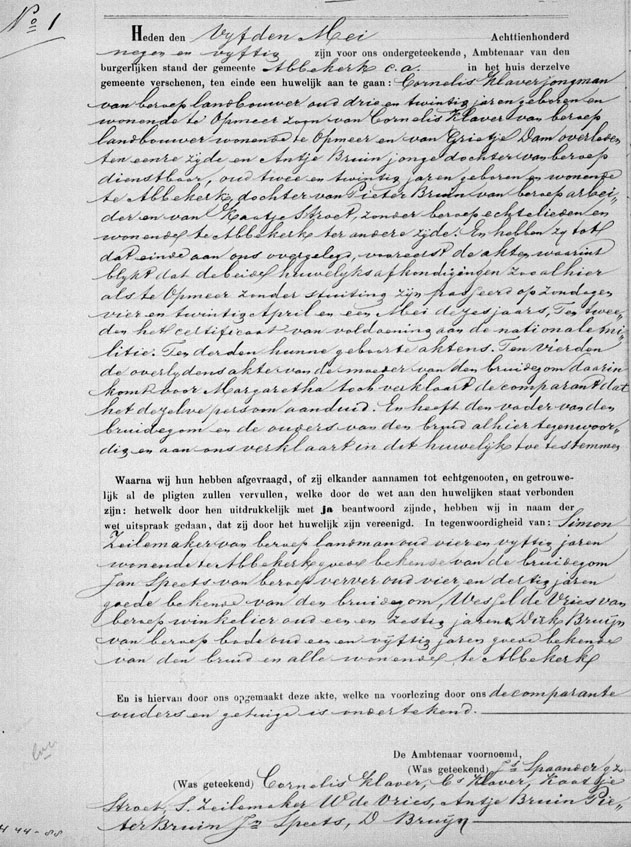 No 1
Heden den Vyfden Mei Achttienhonderd
negen en vyftig zijn voor ons ondergeteekende, Ambtenaar van den
burgerlijken stand der gemeente Abbekerk c.a. in het huis derzelve
gemeente verschenen, ten einde een huwelijk aan te gaan: Cornelis Klaver jongman
van beroep landbouwer oud drie en twintig jaren geboren en
wonende te Opmeer zoon van Cornelis Klaver van beroep
landbouwer wonende te Opmeer en van Grietje Dam overleden
ten eenre zijde en Antje Bruin jonge dochter van beroep
dienstbaar, oud twee en twintig jaren geboren en wonende
te Abbekerk, dochter van Pieter Bruin van beroep arbei-
der en van Kaatje Stroet zonder beroep echtelieden en
wonende te Abbekerk ter andere zijde. En hebben zy tot
dat einde aan ons overgelegd, vooreerst de akten waaruit
blykt dat de beide huwelyks afkondigingen zoo alhier
als te Opmeer zonder stuiting zijn passeerd op zondagen
vier en twintig April en een Mei dezes jaars, Ten twee-
den het certificaat van voldoening aan de nationale mi-
litie. Ten derden hunne geboorte aktens. Ten Vierden
de overlydensakte van de moeder van den bruidegom daarin
komt voor Margaretha toch verklaart de comparant dat
het dezelve persoon aanduid. En heeft den vader van den
bruidegom en de ouders van den bruid alhier tegenwoor-
dig en aan ons verklaart in dit huwelijk toe te stemmen
Waarna wij hun hebben afgevraagd, of zij elkander aannamen tot echtgenooten, en getrouwe-
lijk al de pligten zullen vervullen, welke door de wet aan den huwelijken staat verbonden
zijn: hetwelk door hen uitdrukkelijk met ja beantwoord zijnde, hebben wij in naam der
wet uitspraak gedaan, dat zij door het huwelijk zijn vereenigd. In tegenwoordigheid van: Simon
Zeilemaker van beroep landman oud vier en vyftig jaren
wonende te Abbekerk goede bekende van de bruidegom
Jan Speets van beroep verver oud vier en dertig jaren
goede bekende van den bruidegom, Wessel de Vries van
beroep winkelier oud een en zestig jaren & Dirk Bruijn
van beroep bode oud een en vyftig jaren goede bekende
van den bruid en alle wonende te Abbekerk
En is hiervan door ons opgemaakt deze akte, welke na voorlezing door ons de comparante
ouders en getuige is ondertekend.
De Ambtenaar voornoemd,
(Was geteekend) Js Spaander gz
(Was geteekend) Cornelis Klaver, Cs Klaver, Kaatje
Stroet, S. Zeilemaker W de Vries, Antje Bruin Pie-
ter Bruin Jn Speets, D Bruijn
H 44-88